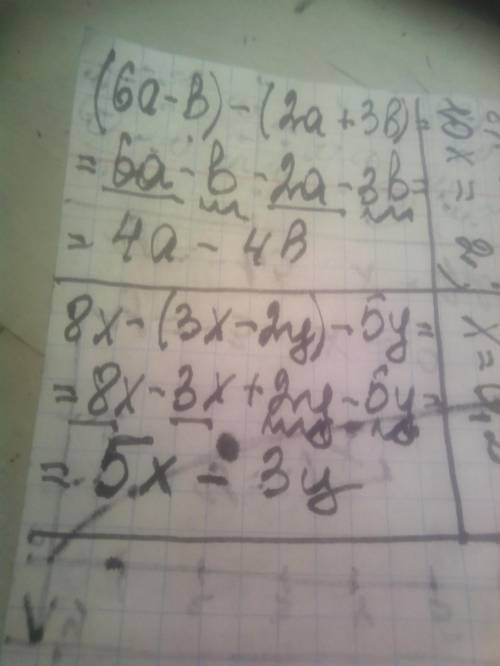 (6a-b)-(2a+3b)=
=6a-b-2a-3b=
=4a-4b
8x-(3x-2y)-5y=
=8x-3x+2y-5y=
=5x-3y
10x = 2;